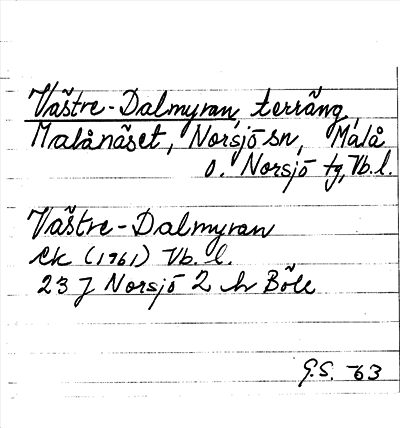 Västre-Dalmyran, terräng,
Malånäset, Norsjö sn, Malå
o. Norsjö tg, Vb. l.
Västre-Dalmyran
Ek (1961) Vb. l.
23 J Norsjö 2 h Böle
G.S. -63